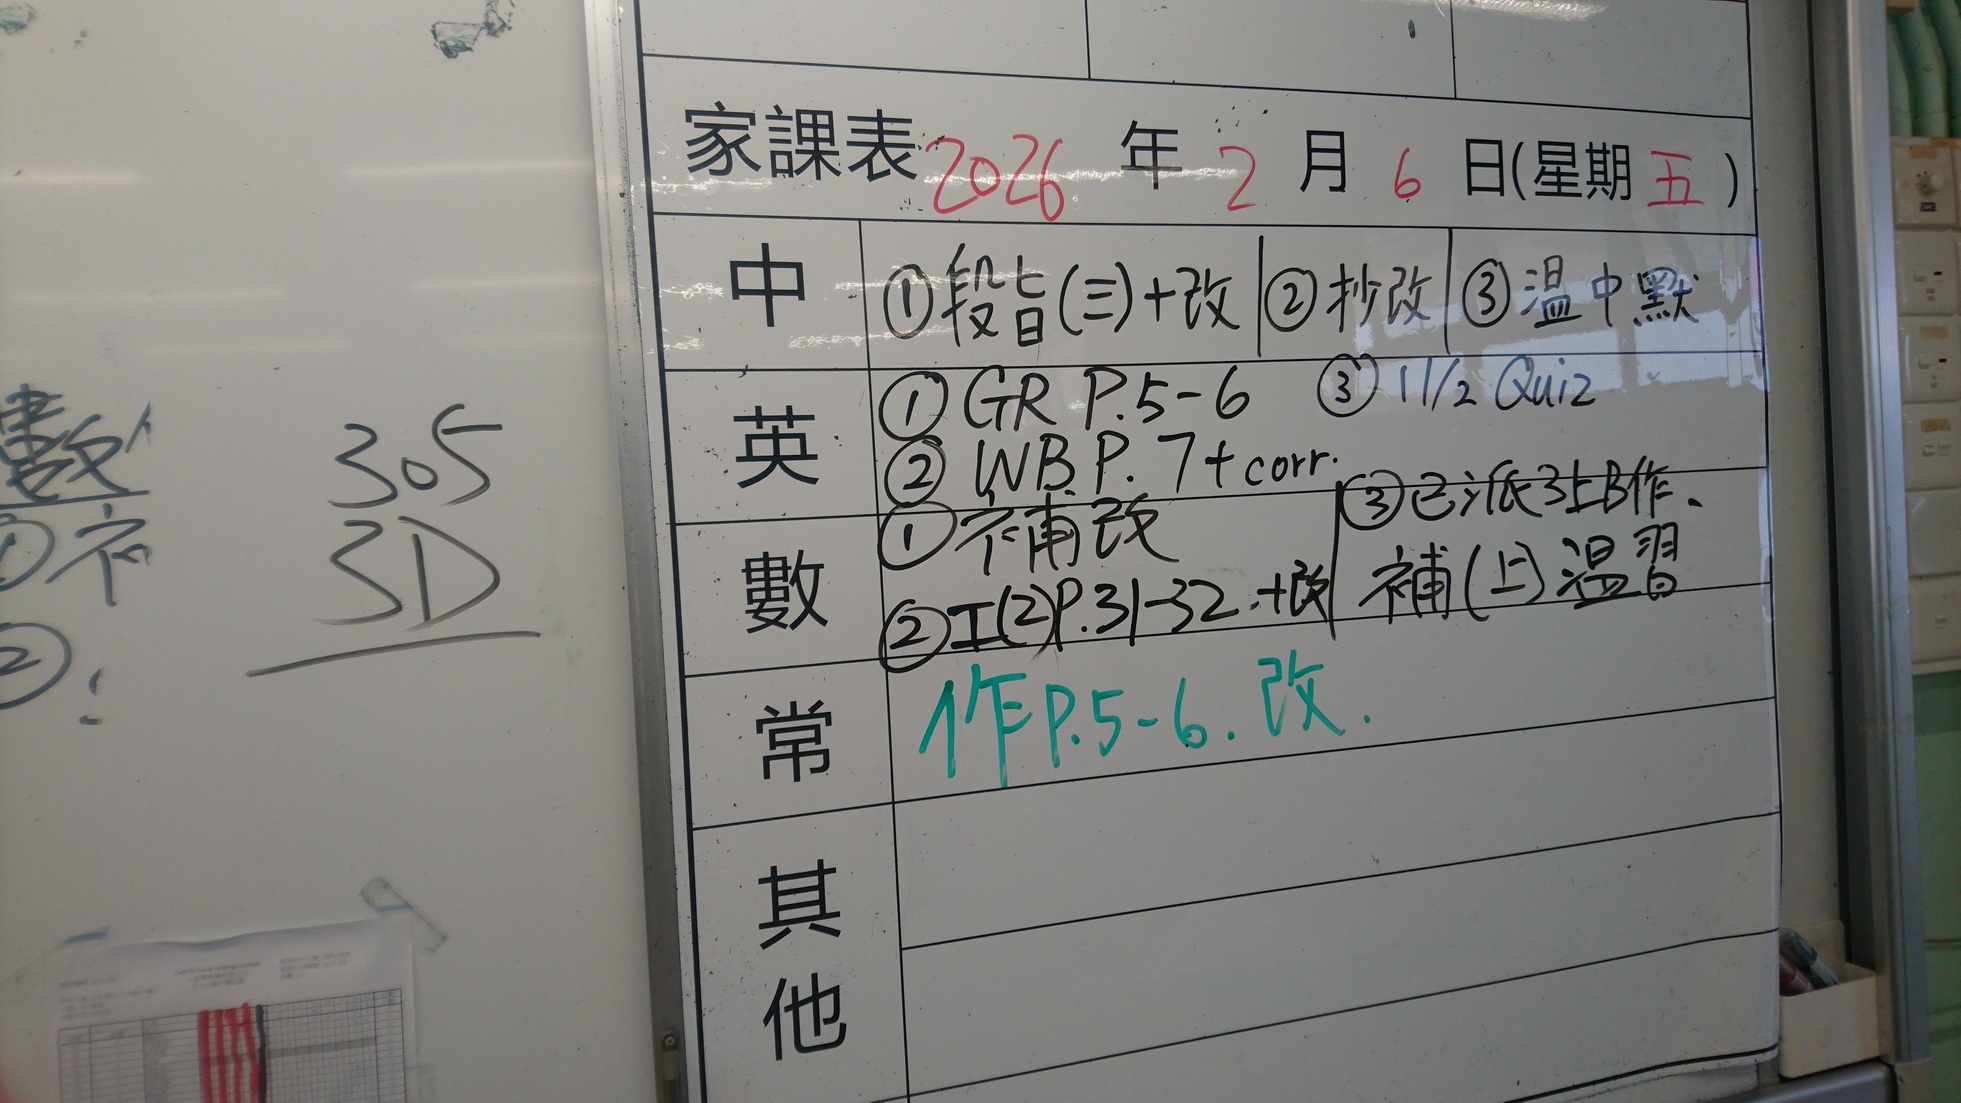 家課表 2026 年 2 月 6 日(星期五)
中 ①段旨(三)+改 ②抄改 ③温中默
英 ①GR P.5-6 ③11/2 Quiz
②WB P.7+corr.
數 ①補改 ③已派3上B作、
②工(2)P.31-32.+改 補(上)温習
常 作P.5-6.改.
其他
數
①
②
305
3D